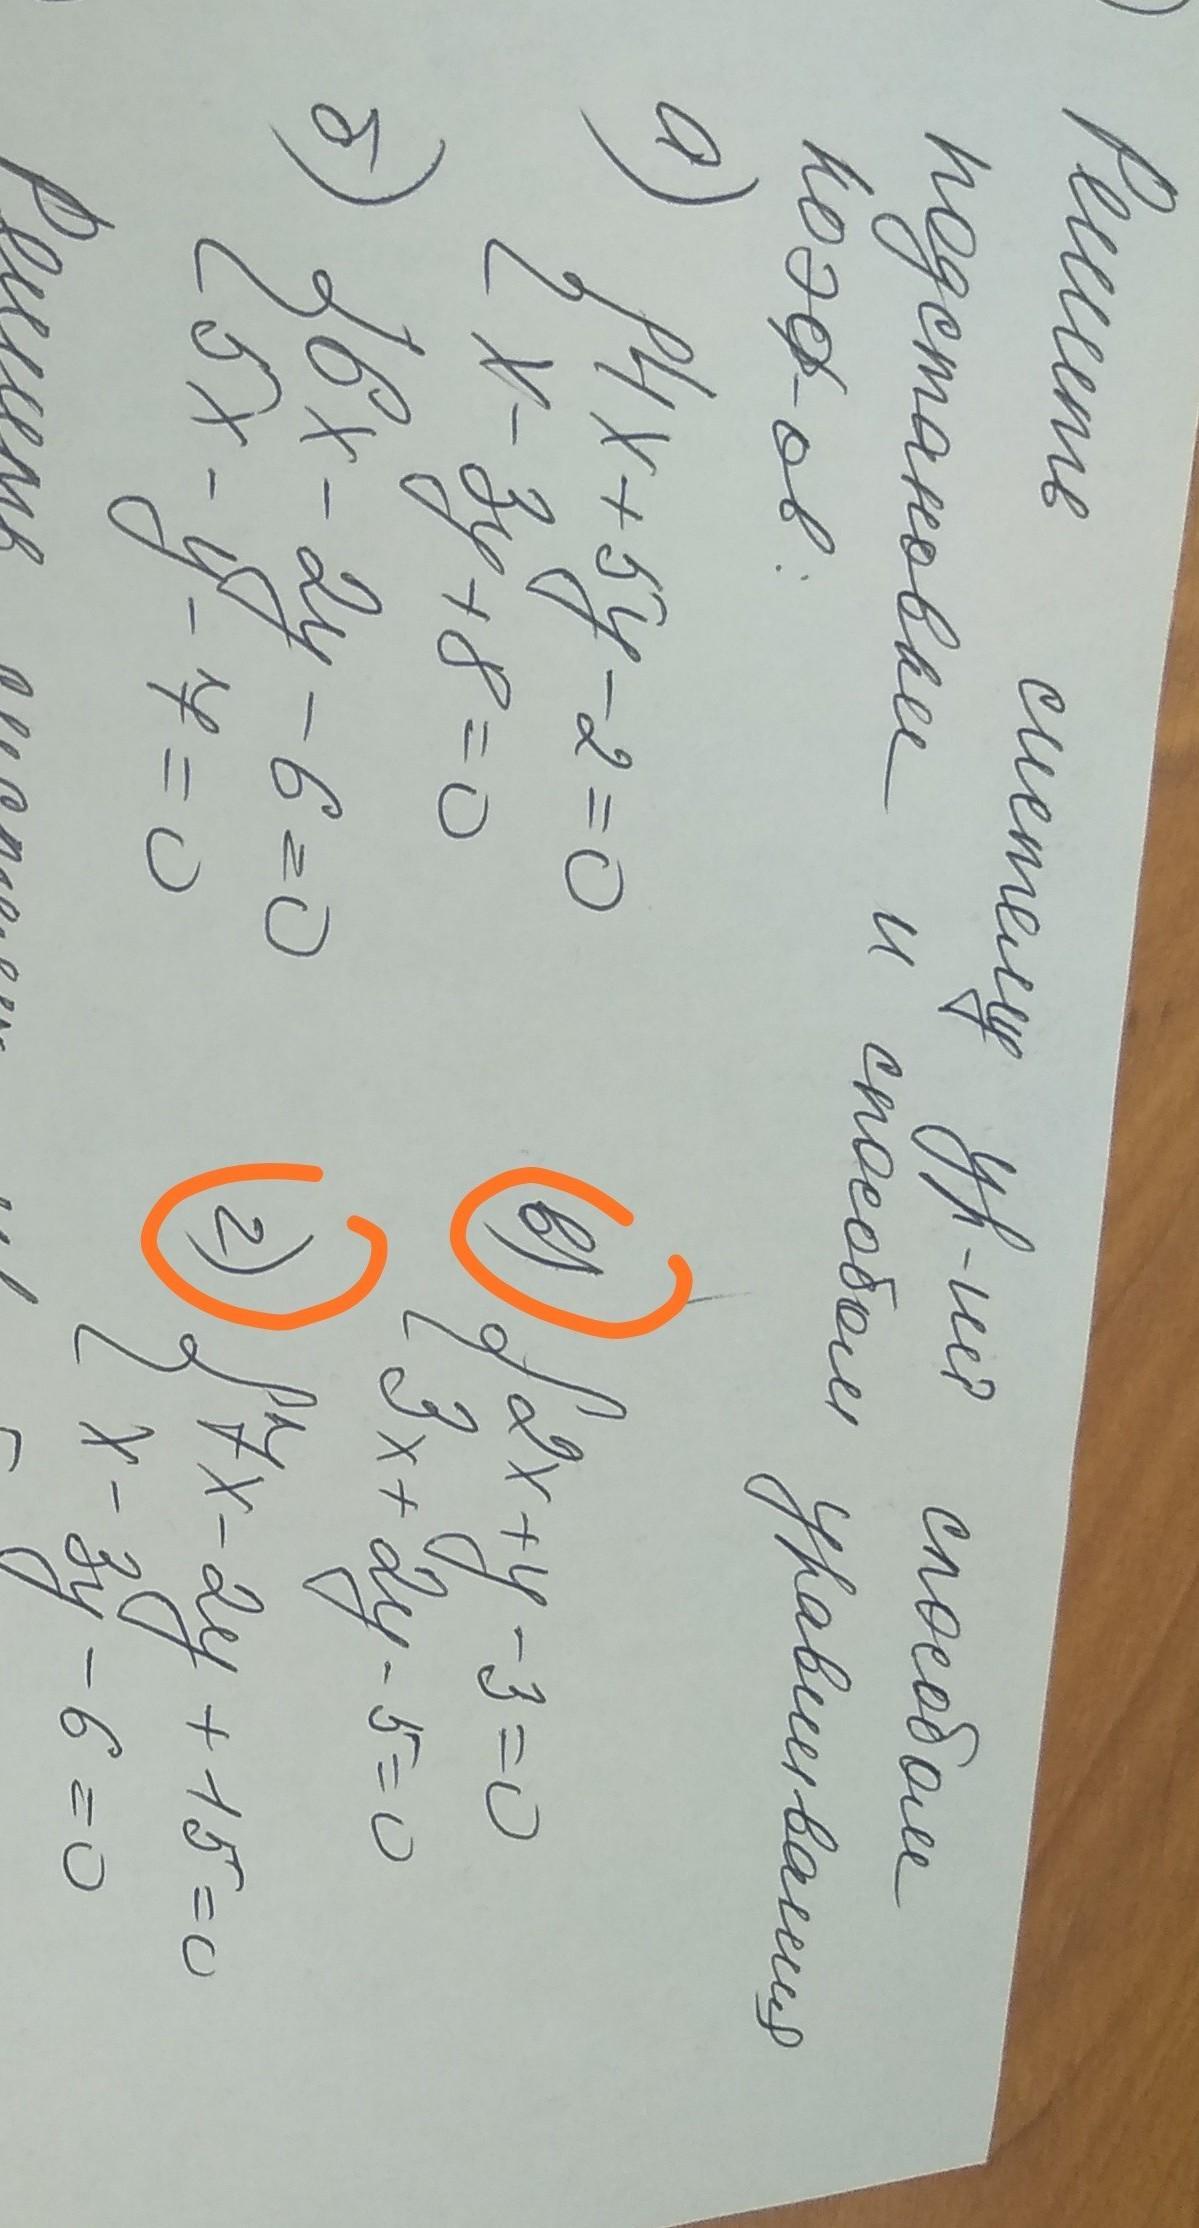 Решить систему ур-ий способом
подстановки и способом уравнивания
коэф-ов:
а) {4x+5y-2=0
x-3y+8=0
б) {6x-2y-6=0
5x-y-7=0
в) {2x+y-3=0
3x+2y-5=0
г) {7x-2y+15=0
x-3y-6=0
Решить